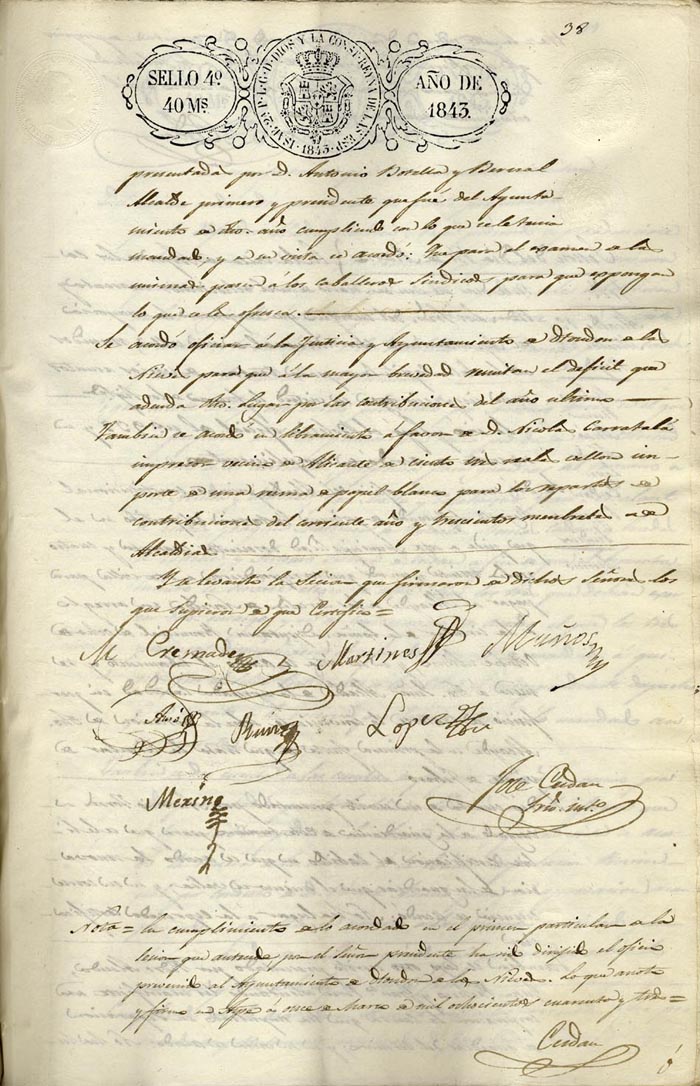 38
SELLO 4º
40 Ms.
ISAB. 2ª P. L. G. D. DIOS Y LA CONST. REYNA DE LAS ESP.
1843
AÑO DE
1843.
presentada por D. Antonio Botella y
Alcalde primero y presidente que fué del Ayunta-
miento de dho. año cumpliendo con lo que se le tenia
mandado; y en su vista se acordó: Que para el examen de la
misma pase á los caballeros Sindicos para que espongan
lo que se les ofresca.
Se acordó oficiar á la Justicia y Ayuntamiento de Hondon de las
Nieves para que á la mayor brevedad remitan el deficit que
adeuda dho. Lugar por las contribuciones del año ultimo
Tambien se acordó un libramiento á favor de D. Nicolas Carratalá
impresor vecino de Alicante de ciento reales vellon im-
porte de una resma de papel blanco para los repartos de
contribuciones del corriente año y trescientos membretes de
Alcaldia.
Y se levantó la Sesion que firmaron de dichos Señores los
que supieron de que Certifico =
M. Cremades
Martines
Muños
Lopez
Merino
Jose Cerdan
Srio. into.
Nota = En cumplimiento de lo acordado en el primer particular de la
sesion que antecede por el Señor presidente se ha dirigido el oficio
prevenido al Ayuntamiento de Hondon de las Nieves. Lo que anoto
y firmo en Aspe á once de Marzo de mil ochocientos cuarenta y tres =
Cerdan